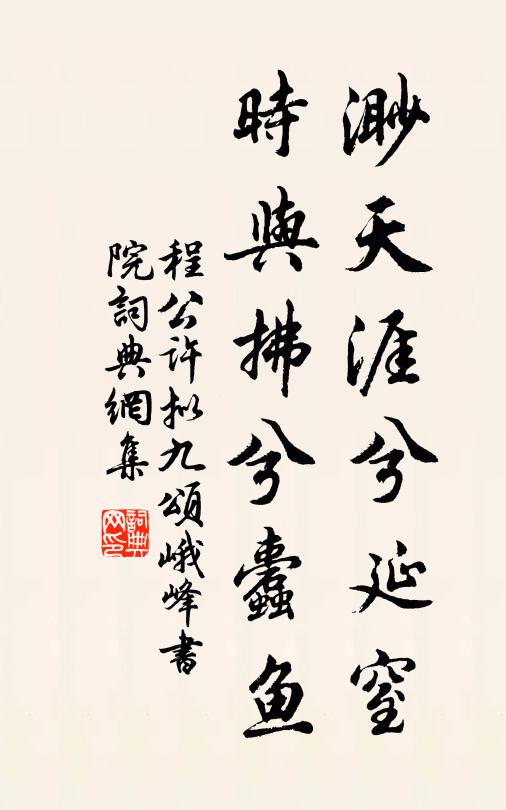 渺天涯兮延窒
時與拂兮蠹魚
程公许拟九頌峨峰書
院詞典網集
詞典網印